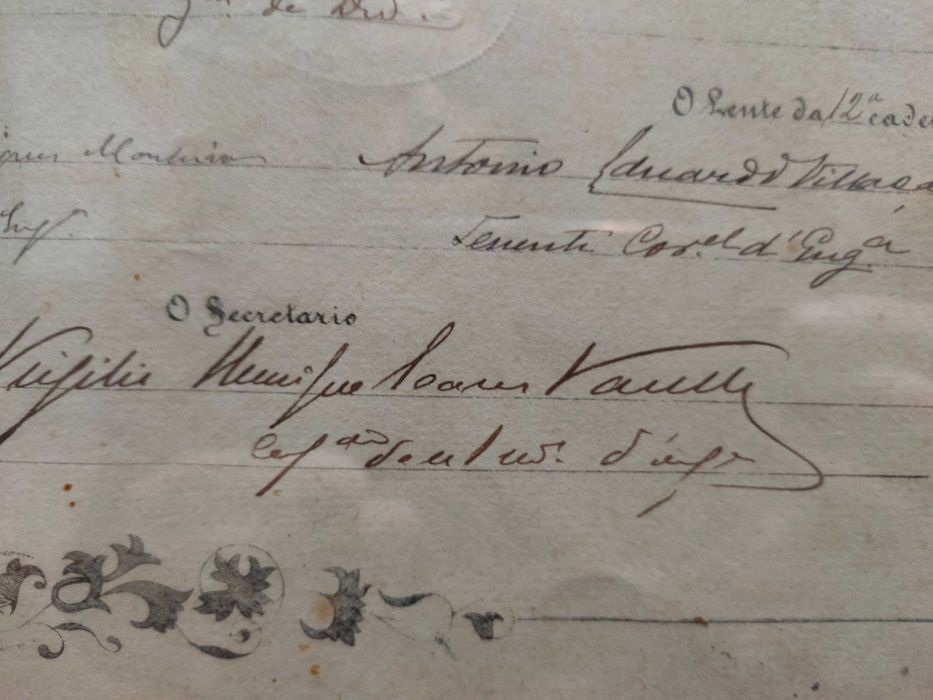 de Div.
O Lente da 12ª cade
Monteiro Antonio Eduardo Villaça
Tenente Cor.el d'Eng.a
O Secretario
Virgilio Henrique Soares Varella
Cap.am d'eng.a